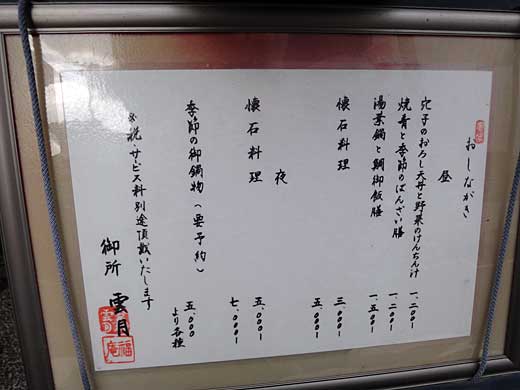 おしながき
昼
穴子のおろし天丼と野菜のけんちん汁 一、二〇〇ー
焼肴と季節のばんざい膳 一、二〇〇ー
湯葉鍋と鯛御飯膳 一、五〇〇ー
懐石料理 三、〇〇〇ー
五、〇〇〇ー
夜
懐石料理 五、〇〇〇ー
七、〇〇〇ー
季節の御鍋物(要予約) 五、〇〇〇より各種
※税・サービス料別途頂戴いたします
御所 雲月